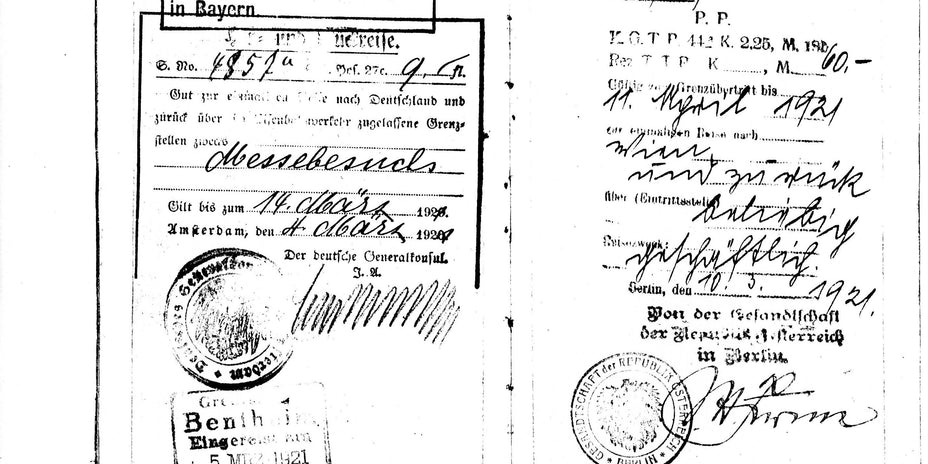 in Bayern.
S. No. 4857a Ges. 27c. 9. fl.
Gut zur nach Deutschland und
zurück über zugelassene Grenz-
stellen zwecks
Messebesuchs
Gilt bis zum 14. März 192
Amsterdam, den 4. März 192
Der deutsche Generalkonsul.
J. A.
Bentheim
Eingereist am
5 MRZ 1921
P. P.
K.G.T.P. 442 K. 2.25, M. 60.-
T.T.P. K. , M.
Gültig zum Grenzübertritt bis
11. April 1921
zur einmaligen Reise nach
Wien,
und zurück
über (Eintrittsstelle)
beliebig
Reisezweck:
geschäftlich.
Berlin, den 10. 3. 1921.
Von der Gesandtschaft
der Republik Österreich
in Berlin.
GESANDTSCHAFT der REPUBLIK ÖSTERREICH * BERLIN *